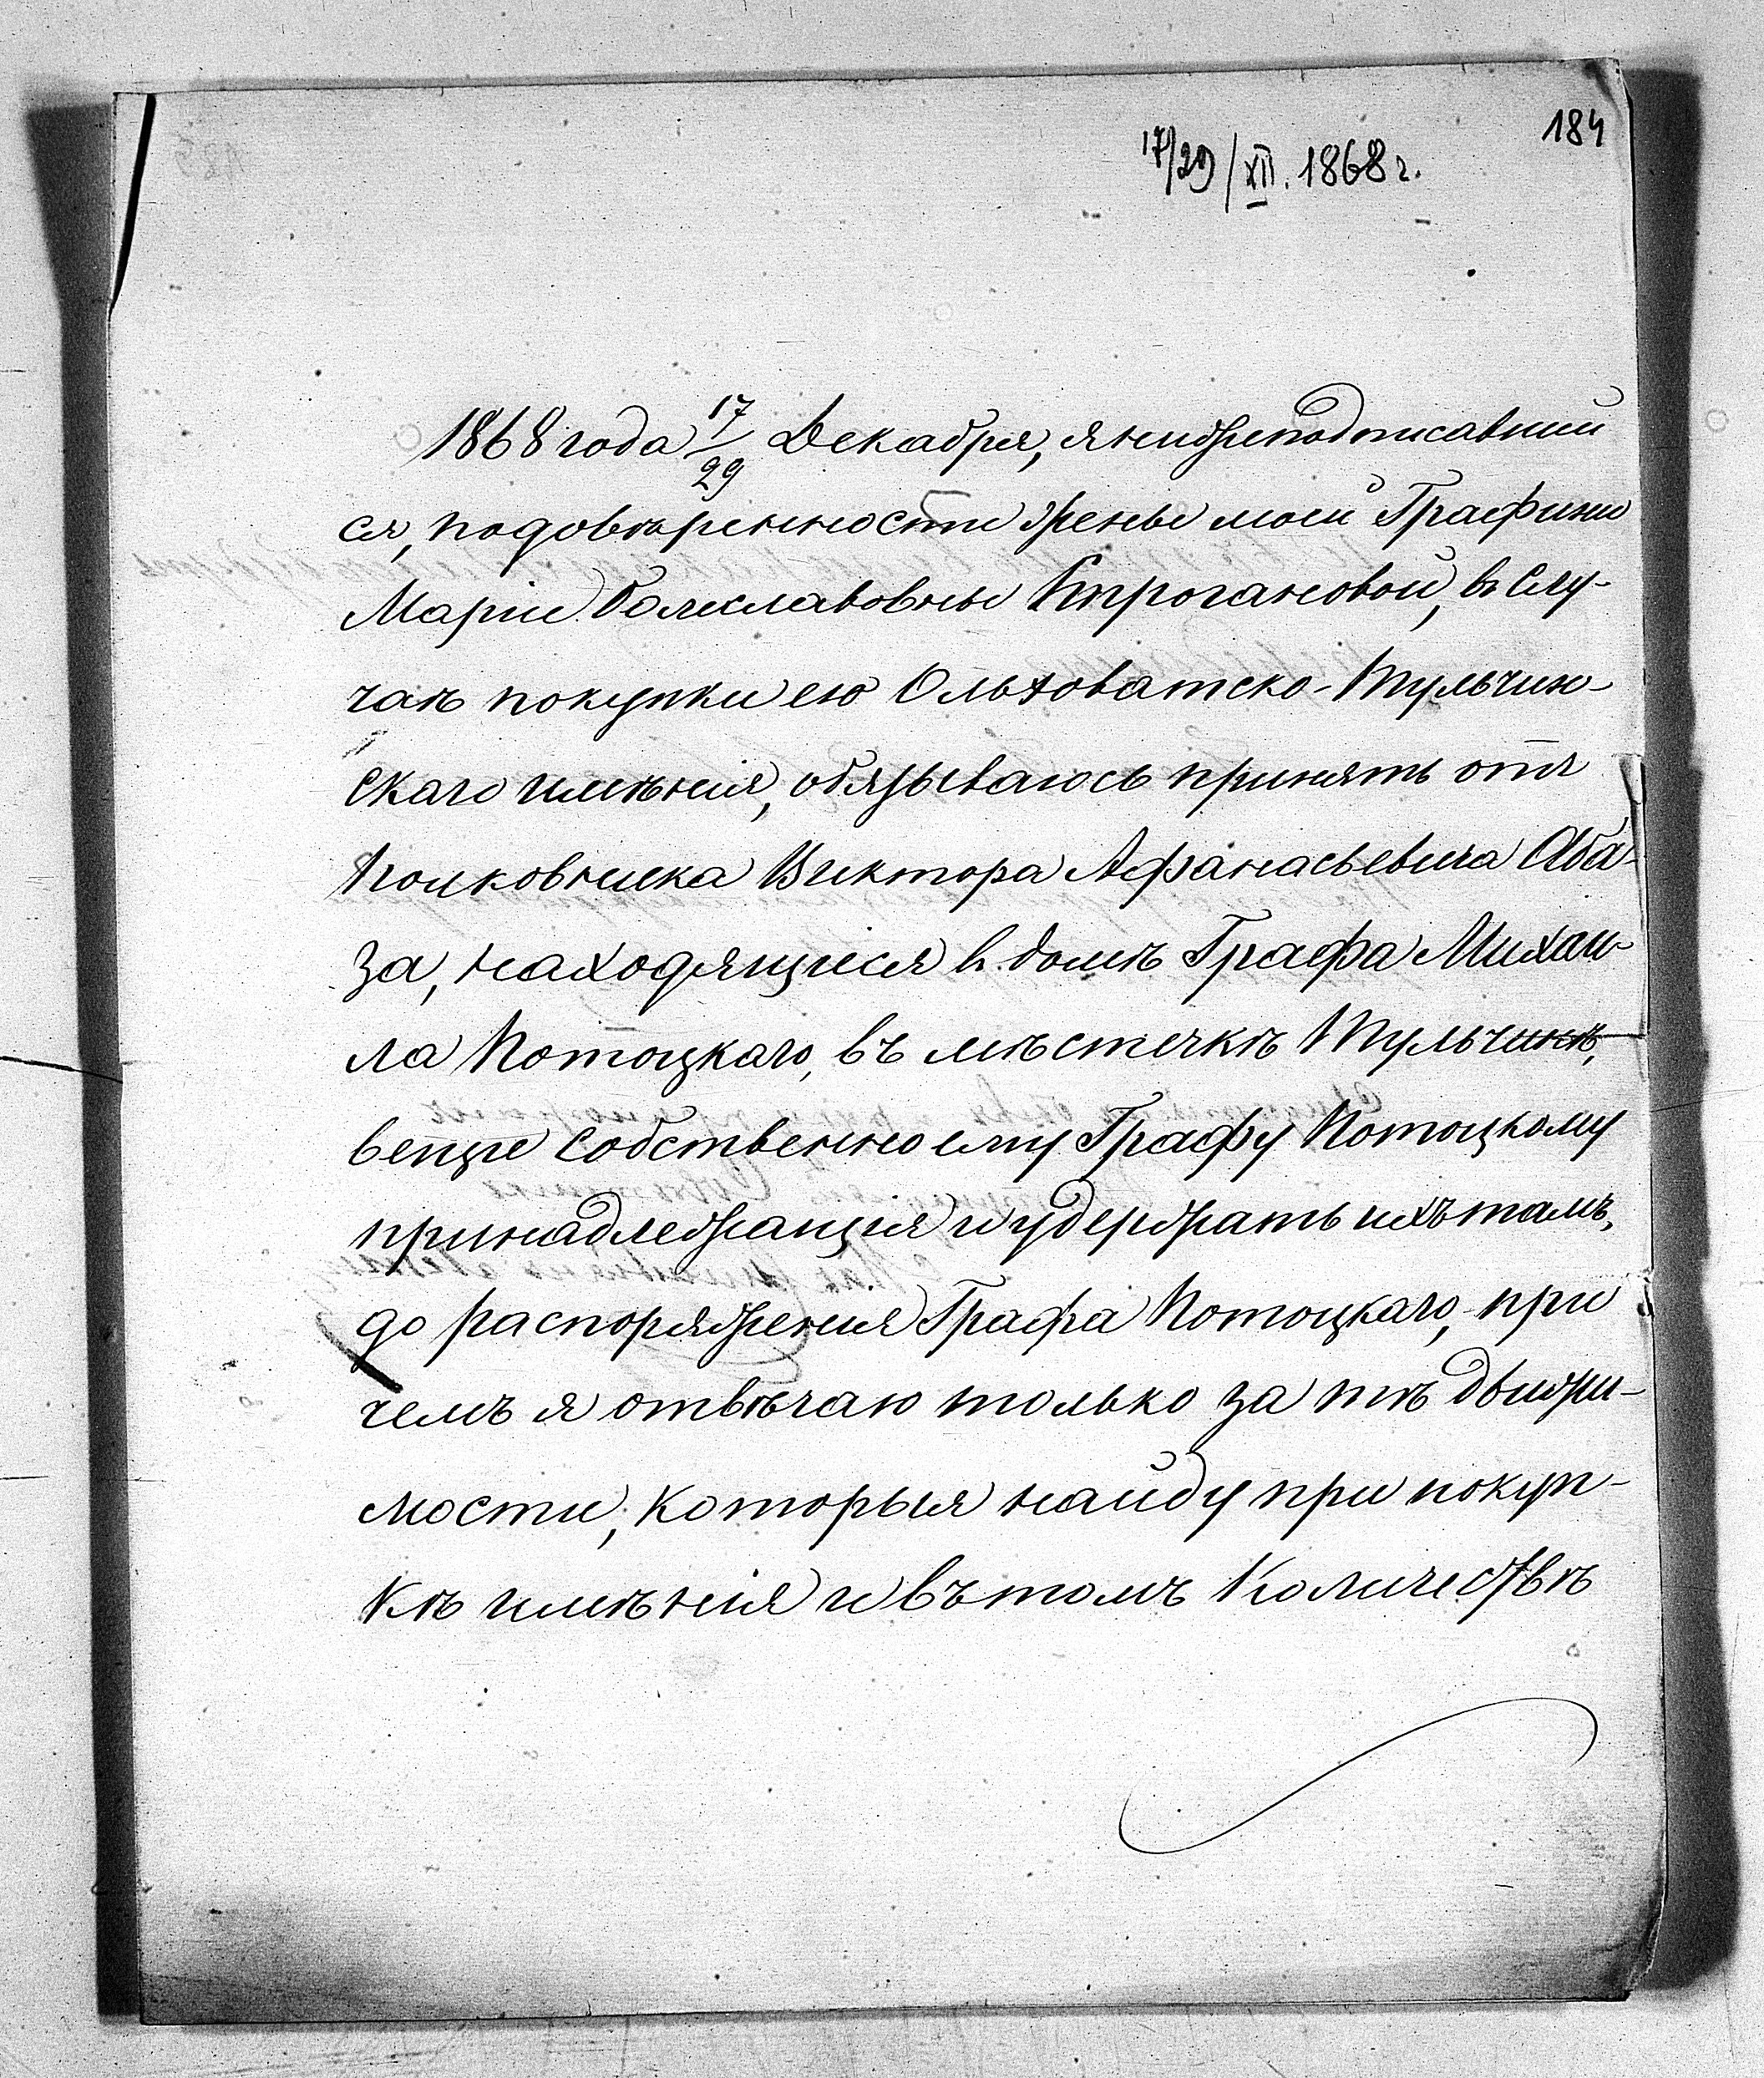 184
17/29/XII. 1868 г.
1868 года 17/29 Декабря, я нижеподписавший
ся, по довѣренности жены моей Графини
Маріи Болеславовны Строгановой, въ слу-
чаѣ покупки ею Ольховатско-Тульчин-
скаго имѣнія, обязываюсь принять отъ
Полковника Виктора Афанасьевича Аба-
за, находящіеся в домѣ Графа Михаи-
ла Потоцкаго, въ мѣстечкѣ Тульчинѣ,
вещи собственно ему Графу Потоцкому
принадлежащія и удержать ихъ тамъ,
до распоряженія Графа Потоцкаго, при
чемъ я отвѣчаю только за тѣ движи-
мости, которыя найду при покуп-
кѣ имѣнія и въ томъ Количествѣ